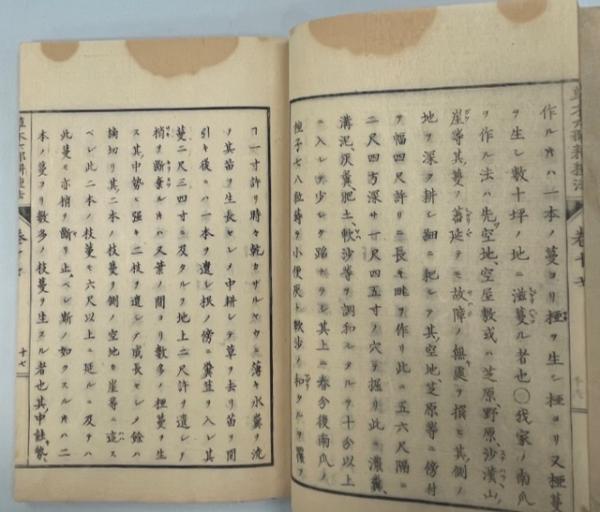 作ル片ハ一本ノ蔓ヨリ椏ヲ生シ椏ヨリ又椏蔓
ヲ生シ數十坪ノ地ニ滋蔓ル者也〇我家ノ南瓜
ヲ作ル法ハ先空地、空屋敷或ハ芝原野原、沙濱、山
崖等其蔓ノ蕃延テモ故障ノ無處ヲ撰ミ其側ノ
地ヲ深ク耕シ細ニ把シテ其空地、芝原等ニ傍付
ヲ幅四尺許リニ長キ畦ヲ作リ此ニ五六尺隔ニ
二尺四方深サ一尺四五寸ノ穴ヲ掘リ此ニ濃糞、
溝泥、灰糞、肥土、軟沙等ヲ調和シタルヲ十分以上
ニ入レテ少シク踏カタシ其上ニ春分後南瓜ノ
種子七八粒蒔キ小便灰ト軟沙ノ和タルヲ覆フ
巻十七
コ一寸許リ時々乾カサルヤウニ薄キ水糞ヲ沃
ノ其苗ヲ生長セシメ中耕シテ草ヲ去リ苗ヲ間
引キ後ニハ一本ヲ遺シ根ノ傍ニ糞苴ヲ入レ其
蔓二尺三四寸ニ及タルヲ地上二尺許ヲ遺シテ
梢ヲ斷棄ル片ハ又葉ノ間ヨリ數多ノ椏蔓ヲ生
ス其中勢ヒ强キ二枝ヲ遺シテ成長セシメ餘ハ
摘切リ其二本ノ枝蔓ヲ側ノ空地ヤ崖等ニ這ス
ベシ此二本ノ枝蔓モ六尺以上ニ延ルニ及テハ
此蔓モ亦梢ヲ斷リ止ベシ斯ノ如クスル片ハ二
本ノ蔓ヨリ數多ノ枝蔓ヲ生スル者也其中勢
草木六部耕種法
十七